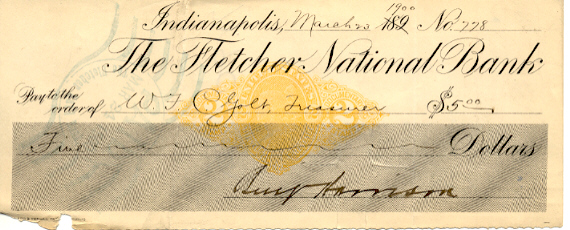 Indianapolis, March 20 1900 189 No. 778
The Fletcher National Bank
Pay to the order of W. T. C Golt, Treasurer $5.00
Five Dollars
Benj Harrison